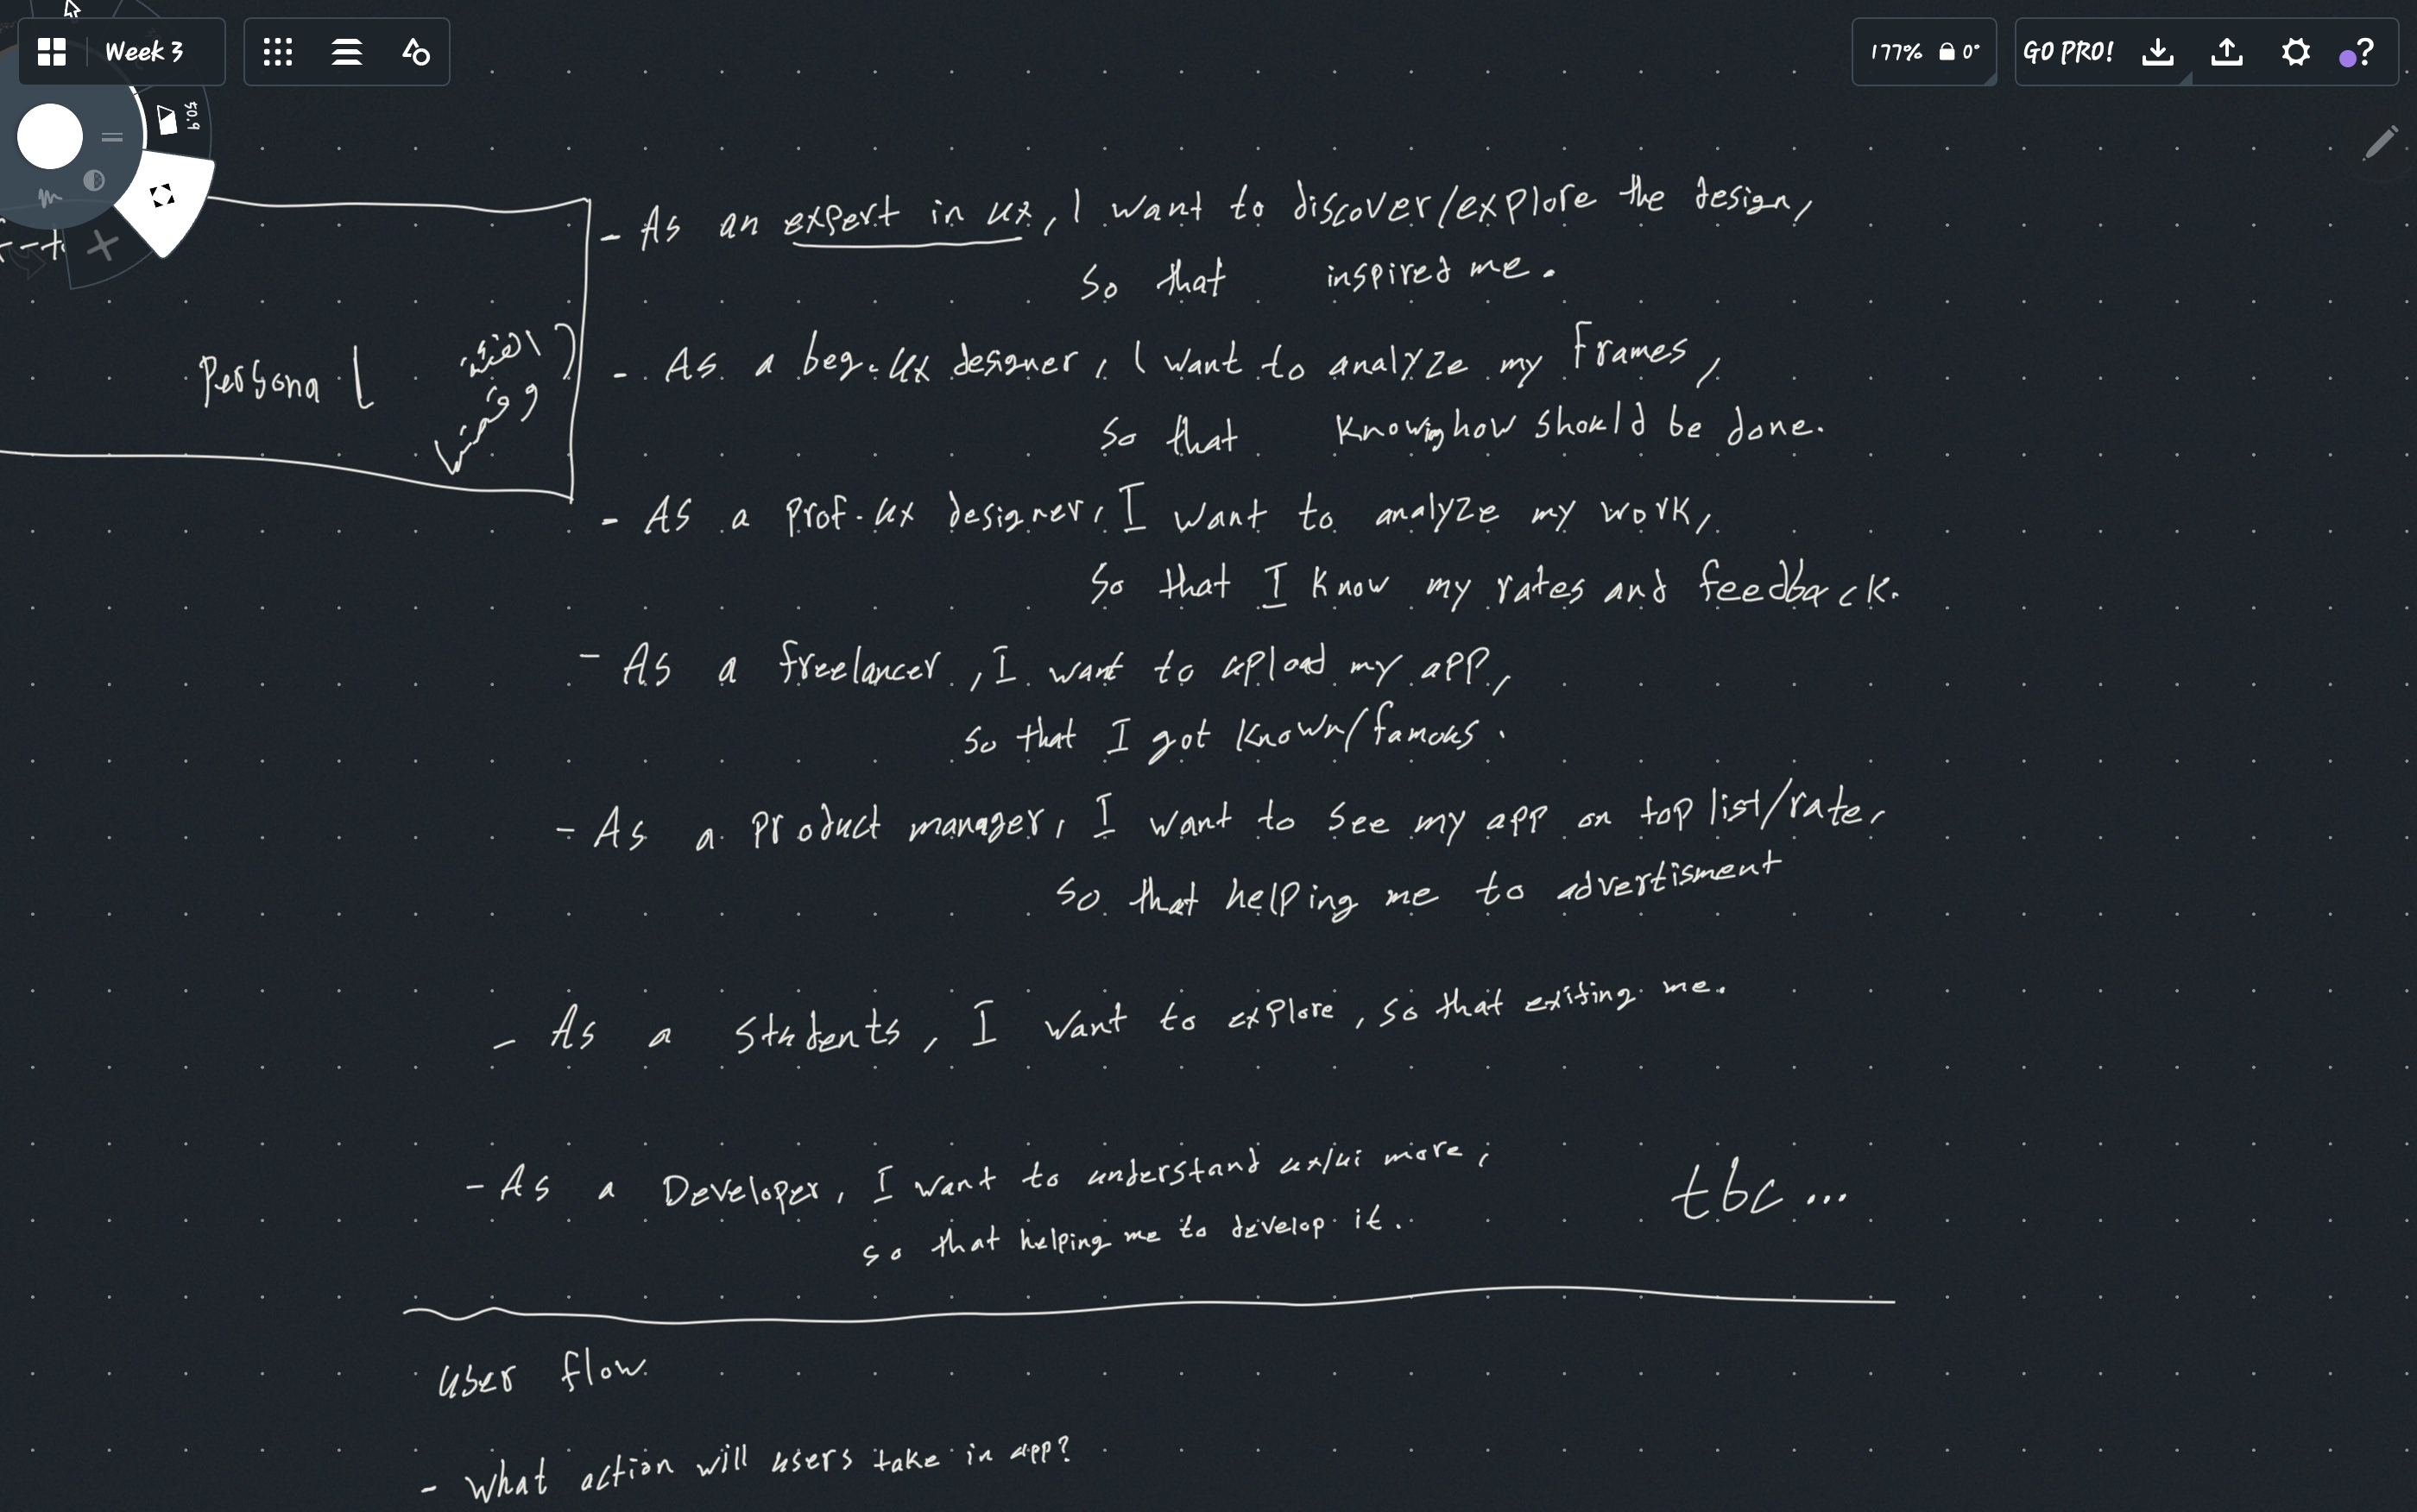 Week 3
177% 0°
GO PRO!
?
50.9
- As an expert in ux, I want to discover/explore the design,
so that inspired me.
Persona (الفئة
- As a beg. ux designer, I want to analyze my frames,
so that knowing how should be done.
- As a prof. ux designer, I want to analyze my work,
so that I know my rates and feedback.
- As a freelancer, I want to upload my app,
so that I got known/famous.
- As a product manager, I want to see my app on top list/rate,
so that helping me to advertisment
- As a students, I want to explore, so that exiting me.
- As a Developer, I want to understand ux/ui more,
so that helping me to develop it.
tbc...
user flow
- what action will users take in app?